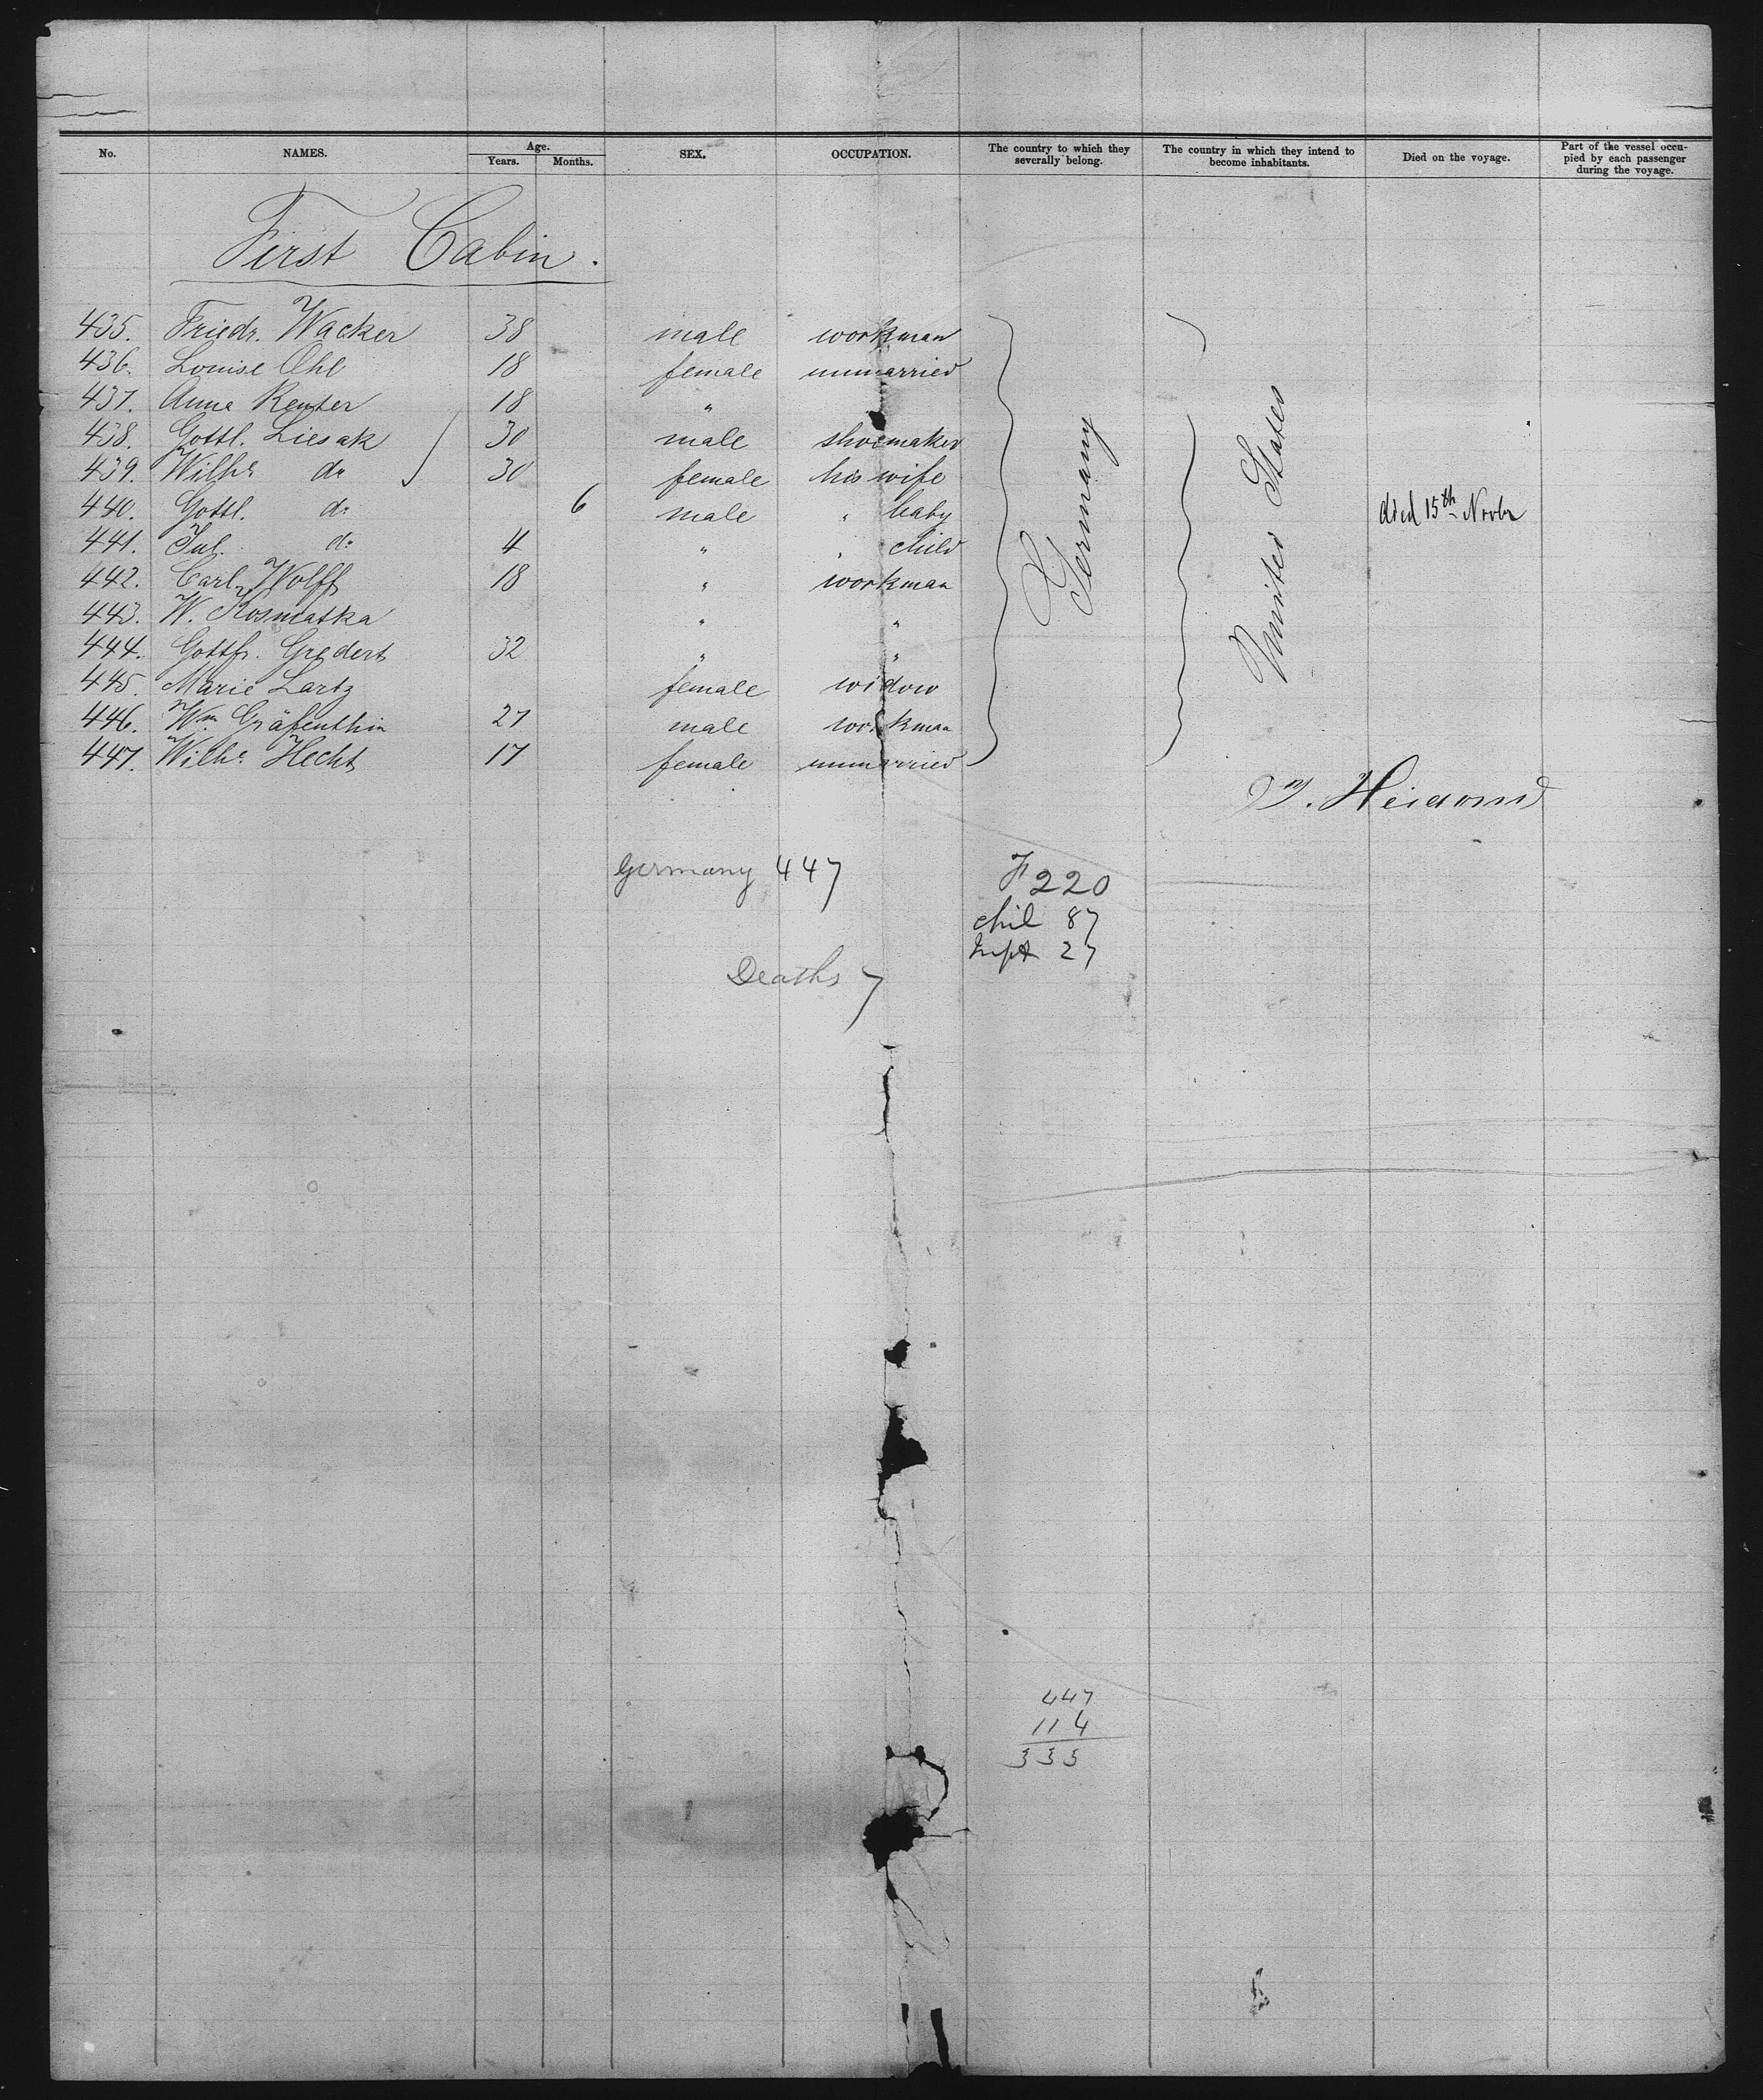 No. NAMES. Age. Years. Months. SEX. OCCUPATION. The country to which they severally belong. The country in which they intend to become inhabitants. Died on the voyage. Part of the vessel occupied by each passenger during the voyage.
First Cabin.
435. Friedr. Wacker 38 male workman
436. Louise Ohl 18 female unmarried
437. Anna Reuter 18 " "
438. Gottl. Liesak 30 male shoemaker
439. Wilhe do 30 female his wife
440. Gottl. do 6 male " baby died 15th Novbr
441. Jul. do 4 " " child
442. Carl Wolff 18 " workman
443. W. Kosmatka " "
444. Gottfr. Gredert 32 " "
445. Marie Lartz female widow
446. Wm. Gräfenthin 27 male workman
447. Wilhe Hecht 17 female unmarried
Germany
United States
Germany 447
F 220
chil 87
Inft 27
Deaths 7
447
114
333